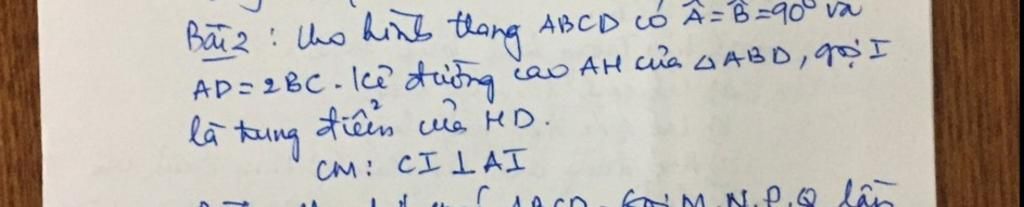 Bài 2 : Cho hình thang ABCD có Â = B̂ = 90° và
AD = 2BC. Kẻ đường cao AH của △ ABD, gọi I
là trung điểm của HD.
CM: CI ⊥ AI
ABCD. Gọi M, N, P, Q lần